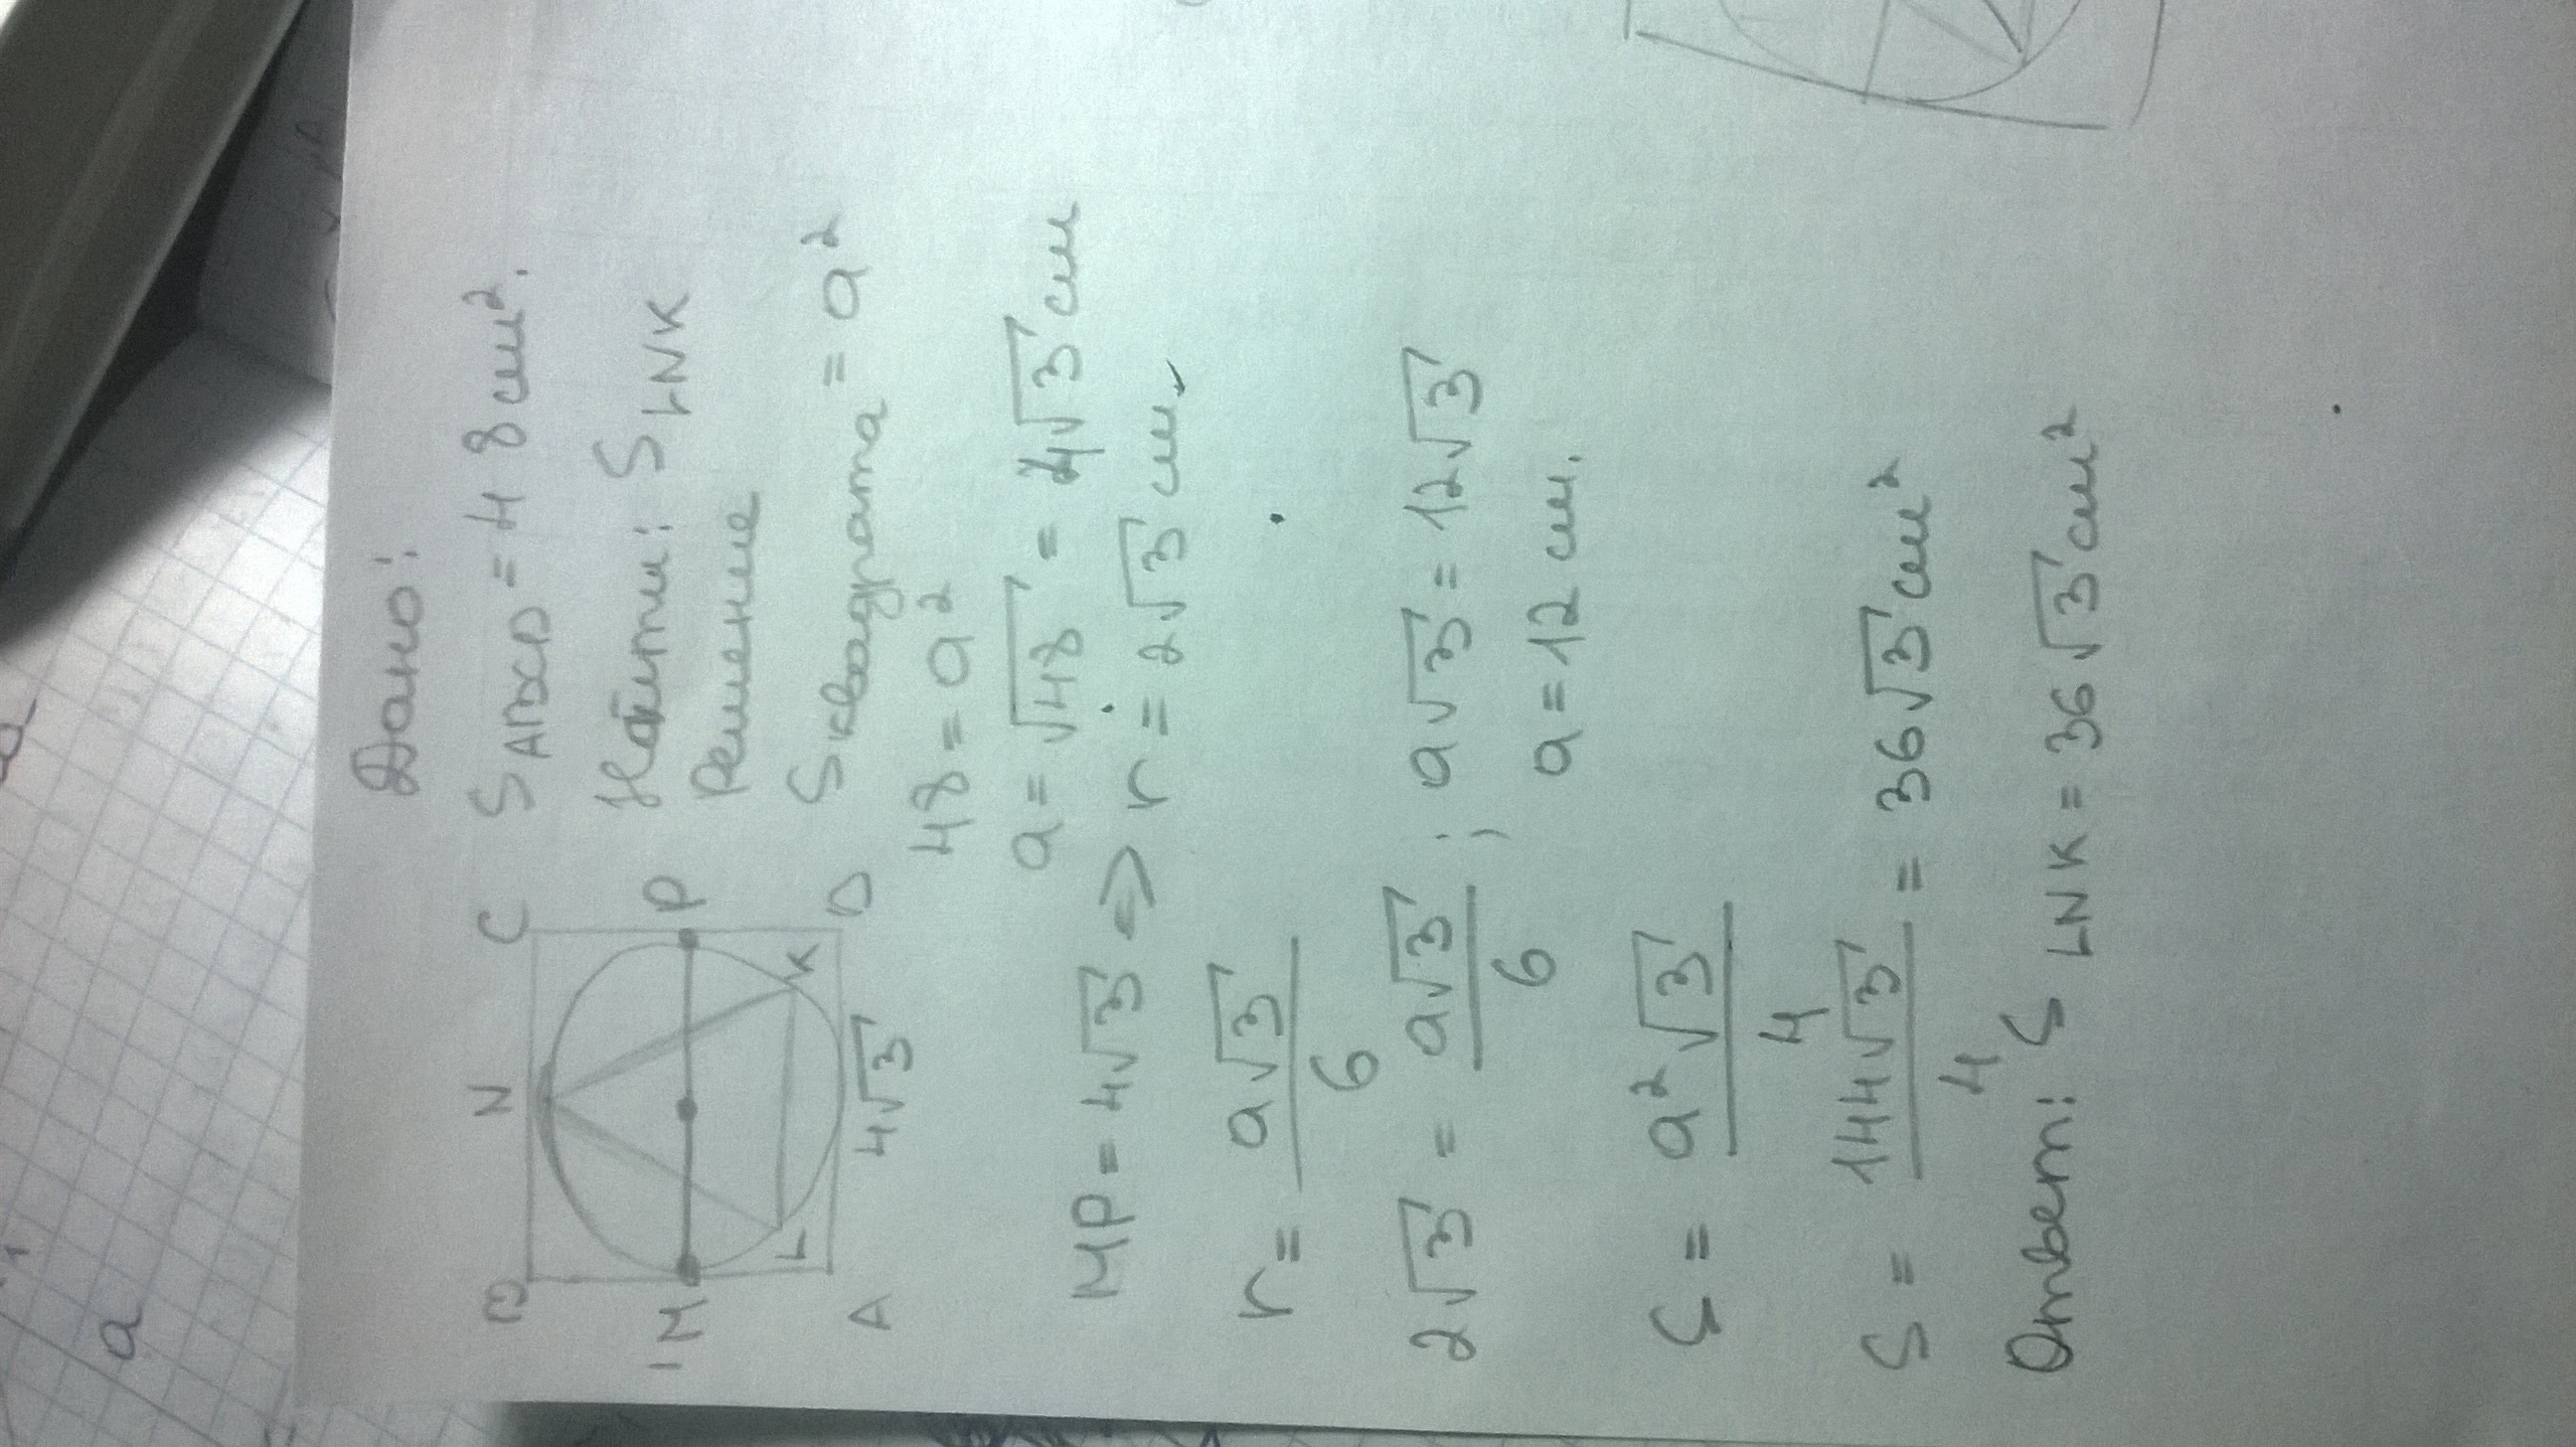 Дано:
S ABCD = 48 см².
Найти: S LNK
Решение
S квадрата = a²
48 = a²
a = √48 = 4√3 см
B N C
M P
L K
A 4√3 D
MP = 4√3 => r = 2√3 см
r = a√3/6
2√3 = a√3/6 ; a√3 = 12√3
a = 12 см.
S = a²√3/4
S = 144√3/4 = 36√3 см²
Ответ: S LNK = 36√3 см²
a